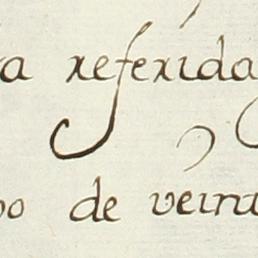 a referida
po de veint